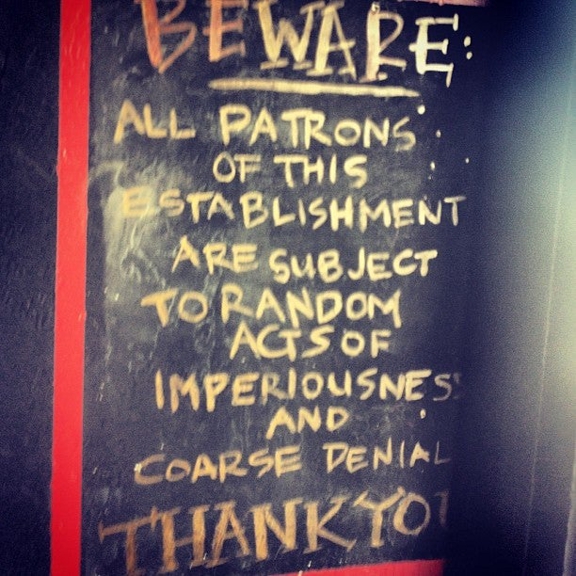 BEWARE:
ALL PATRONS
OF THIS
ESTABLISHMENT
ARE SUBJECT
TO RANDOM
ACTS OF
IMPERIOUSNESS
AND
COARSE DENIAL
THANK YOU